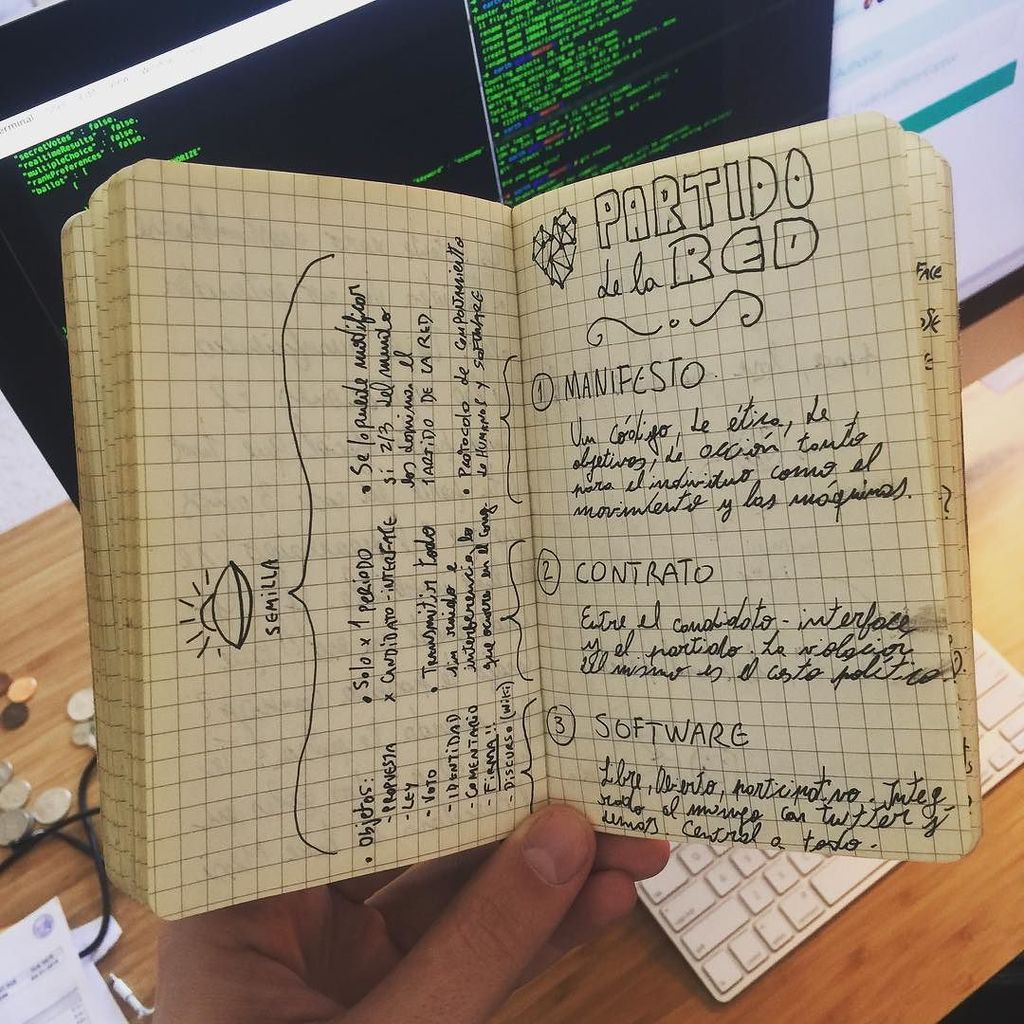 "secretVotes" : false,
"realtimeResults" : false,
"multipleChoice" : false,
"rankPreferences" : false,
"ballot" : {
SEMILLA
• Se lo puede modificar
si 2/3 del mundo
los dominios el
PARTIDO DE LA RED
• PROTOCOLO DE COMPORTAMIENTO
de HUMANOS Y SOFTWARE
• Solo x 1 PERIODO
x CANDIDATO-INTERFACE
• TRANSMITIR todo
sin ruido e
interferencia lo
que ocurre en el Cong.
• OBJETOS:
- PROPUESTA
- LEY
- VOTO
- IDENTIDAD
- COMENTARIO
- FIRMA!!
- DISCURSO (WIKI)
PARTIDO
de la RED
1 MANIFESTO
Un código, de ética, de
objetivos, de acción tanto
para el individuo como el
movimiento y las máquinas.
2 CONTRATO
Entre el candidato - interface
y el partido. La violación
del mismo es el costo político.
3 SOFTWARE
Libre, abierto, participativo. Integ-
rado al mundo con twitter y
demás. Central a todo.